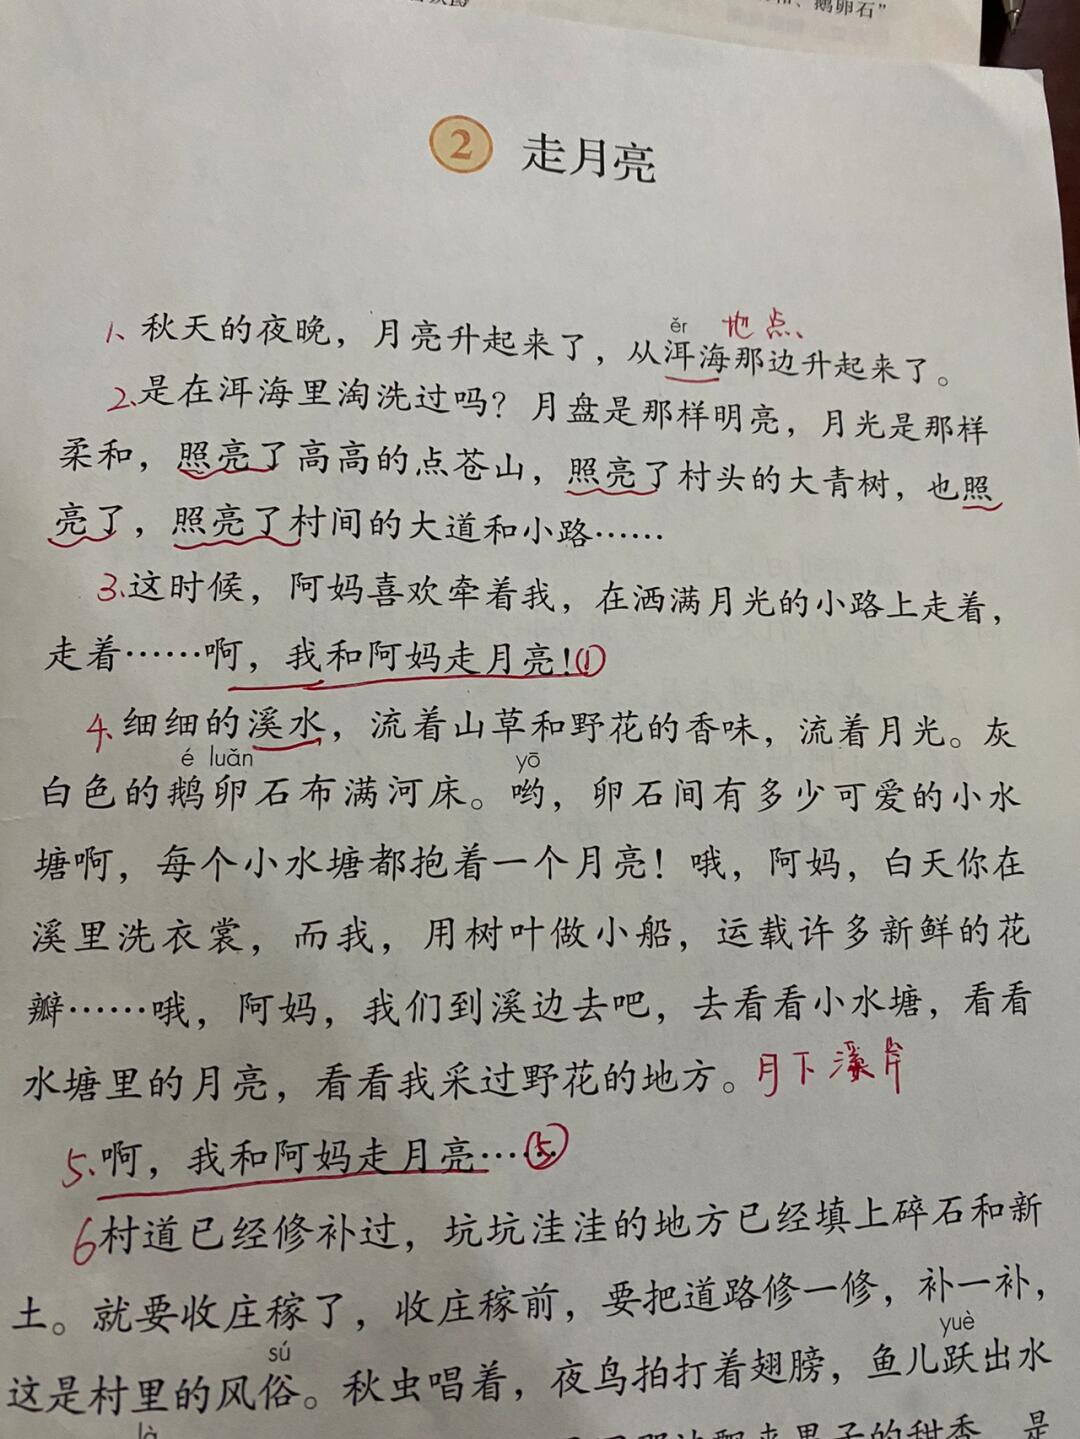 鹅卵石”
2 走月亮
ěr 地点、
1、秋天的夜晚，月亮升起来了，从洱海那边升起来了。
2、是在洱海里淘洗过吗？月盘是那样明亮，月光是那样
柔和，照亮了高高的点苍山，照亮了村头的大青树，也照
亮了，照亮了村间的大道和小路……
3、这时候，阿妈喜欢牵着我，在洒满月光的小路上走着，
走着……啊，我和阿妈走月亮！①
4、细细的溪水，流着山草和野花的香味，流着月光。灰
é luǎn yō
白色的鹅卵石布满河床。哟，卵石间有多少可爱的小水
塘啊，每个小水塘都抱着一个月亮！哦，阿妈，白天你在
溪里洗衣裳，而我，用树叶做小船，运载许多新鲜的花
瓣……哦，阿妈，我们到溪边去吧，去看看小水塘，看看
水塘里的月亮，看看我采过野花的地方。月下溪岸
5、啊，我和阿妈走月亮……⑤
6村道已经修补过，坑坑洼洼的地方已经填上碎石和新
土。就要收庄稼了，收庄稼前，要把道路修一修，补一补，
sú yuè
这是村里的风俗。秋虫唱着，夜鸟拍打着翅膀，鱼儿跃出水
là
那边飘来果子的甜香，是